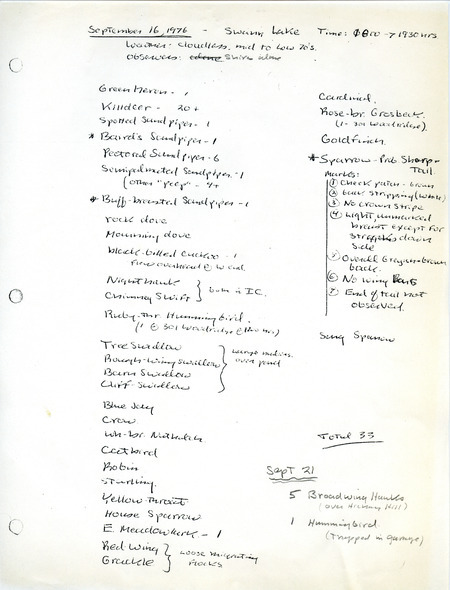 September 16, 1976 - Swany Lake Time: 0800 → 1930 hrs
Weather: Cloudless, mid to low 70's.
Observers: Shirl
Green Heron - 1
Killdeer - 20+
Spotted Sandpiper - 1
* Baird's Sandpiper - 1
Pectoral Sandpiper - 6
Semipalmated Sandpiper - 1
(other "peep" - 4+
* Buff-breasted Sandpiper - 1
rock dove
Mourning dove
black-billed cuckoo - 1
flew overhead @
Nighthawk
Chimney Swift } both in I.C.
Ruby-thr. Hummingbird.
(1 @ 301 Woodridge @
Tree Swallow
Rough-wing Swallow
Barn Swallow
Cliff-Swallow
} large
over pond
Blue Jay
Crow
Wh-br. Nuthatch
Catbird
Robin
Starling.
Yellow-throat
House Sparrow
E. Meadowlark - 1
Red-wing
Grackle } loose migrating
flocks
Cardinal.
Rose-br. Grosbeak.
(1 - 301 Woodridge)
Goldfinch.
* Sparrow - Prob Sharp-
Tail
marks:
① Cheek patch - brown
② back stripping (white)
③ No crown stripe
④ Light, unmarked
breast except for
down
side
Overall Grayish-brown
back.
⑥ No wing bars
End of tail not
observed.
Song Sparrow
Total 33
Sept 21
5 Broadwing Hawks
(over Hickory Hill)
1 Hummingbird
(trapped in garage)